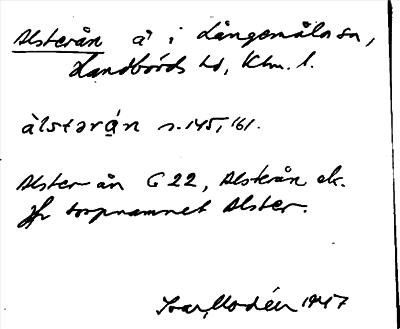 Alsterån å i Långemåla sn,
Handbörds hd, Klm. l.
àlstərá̱n s. 145, 161.
Alster ån G 22, Alsterån ek.
Jfr torpnamnet Alster.
Ivar Modéer 1947